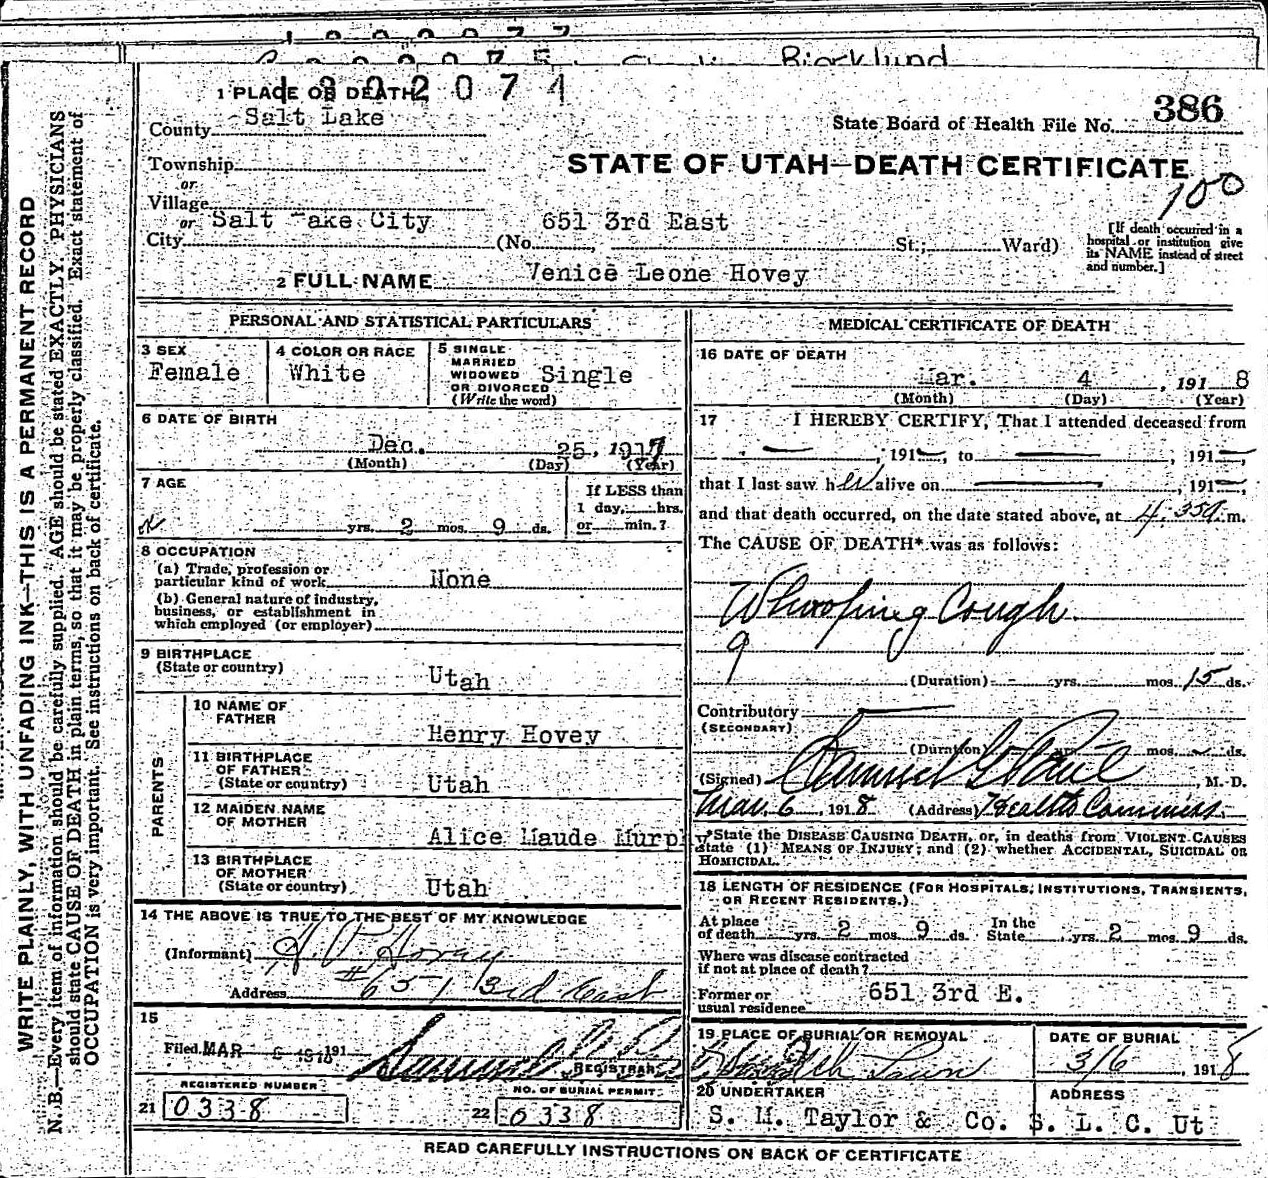 Bjorklund
1302074
1 PLACE OF DEATH
County Salt Lake
State Board of Health File No. 386
Township
STATE OF UTAH—DEATH CERTIFICATE
or
Village
100
or Salt Lake City 651 3rd East
City (No. St.; Ward)
[If death occurred in a
hospital or institution give
its NAME instead of street
and number.]
2 FULL NAME Venice Leone Hovey
PERSONAL AND STATISTICAL PARTICULARS
3 SEX
Female
4 COLOR OR RACE
White
5 SINGLE
MARRIED
WIDOWED
OR DIVORCED
(Write the word)
Single
6 DATE OF BIRTH
Dec. 25, 1917
(Month) (Day) (Year)
7 AGE
yrs. 2 mos. 9 ds.
If LESS than
1 day, hrs.
or min.?
8 OCCUPATION
(a) Trade, profession or
particular kind of work None
(b) General nature of industry,
business, or establishment in
which employed (or employer)
9 BIRTHPLACE
(State or country)
Utah
PARENTS
10 NAME OF
FATHER
Henry Hovey
11 BIRTHPLACE
OF FATHER
(State or country) Utah
12 MAIDEN NAME
OF MOTHER
Alice Maude Murph
13 BIRTHPLACE
OF MOTHER
(State or country) Utah
14 THE ABOVE IS TRUE TO THE BEST OF MY KNOWLEDGE
(Informant) H. P. Hovey
Address #651 3rd East
15
Filed MAR 6 1918 191
REGISTRAR
REGISTERED NUMBER
21 0338
NO. OF BURIAL PERMIT
22 0338
MEDICAL CERTIFICATE OF DEATH
16 DATE OF DEATH
Mar. 4, 1918
(Month) (Day) (Year)
17 I HEREBY CERTIFY, That I attended deceased from
—, 191—, to —, 191—,
that I last saw her alive on —, 191—,
and that death occurred, on the date stated above, at 4:35 a. m.
The CAUSE OF DEATH* was as follows:
Whooping Cough
9
(Duration) - yrs. mos. 15 ds.
Contributory —
(SECONDARY)
(Duration) yrs. mos. ds.
(Signed) Samuel G. Paul, M. D.
Mar. 6, 1918 (Address) Health Commiss.
*State the DISEASE CAUSING DEATH, or, in deaths from VIOLENT CAUSES
state (1) MEANS OF INJURY; and (2) whether ACCIDENTAL, SUICIDAL OR
HOMICIDAL.
18 LENGTH OF RESIDENCE (FOR HOSPITALS, INSTITUTIONS, TRANSIENTS,
OR RECENT RESIDENTS.)
At place
of death yrs. 2 mos. 9 ds.
In the
State yrs. 2 mos. 9 ds.
Where was disease contracted
if not at place of death?
Former or
usual residence 651 3rd E.
19 PLACE OF BURIAL OR REMOVAL
Lawn
DATE OF BURIAL
3/6, 1918
20 UNDERTAKER
S. M. Taylor & Co.
ADDRESS
S. L. C. Ut
READ CAREFULLY INSTRUCTIONS ON BACK OF CERTIFICATE
WRITE PLAINLY, WITH UNFADING INK—THIS IS A PERMANENT RECORD
N. B.—Every item of information should be carefully supplied. AGE should be stated EXACTLY. PHYSICIANS
should state CAUSE OF DEATH in plain terms, so that it may be properly classified. Exact statement of
OCCUPATION is very important. See instructions on back of certificate.